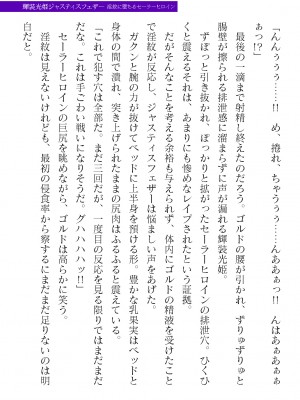 輝装光姫ジャスティスフェザー 淫紋に堕ちるセーラーヒロイン
「んんぅぅぅ……!! め、捲れ、ちゃうぅぅ……んああぁっ!! んはあぁぁ
あっ!?」
最後の一滴まで射精し終えたのだろう。ゴルドの腰が引かれ、ずりゅりゅうと
腸壁が擦られる排泄感に溜まらずに声が漏れる輝装光姫。
ずぽっと引き抜かれ、ぽっかりと拡がったセーラーヒロインの排泄穴。ひくひ
くと震えるそれは、あまりにも惨めなレイプされたという証拠。
だがそんなことを考える余裕も与えられず、体内にゴルドの精液を受けたこと
で淫紋が反応し、ジャスティスフェザーは悩ましい声をあげた。
ガクンと腕の力が抜けてベッドに上半身を預ける形。豊かな乳果実はベッドと
身体の間で潰れ、突き上げられたままの尻肉はふるふると震えている。
「これで犯す穴は全部だ。まだ三回だが、一度目の反応を見る限りではまだまだ
だな。これは手ごわい戦いになりそうだ。グハハハハッ!!」
セーラーヒロインの巨尻を眺めながら、ゴルドは高らかに笑う。
淫紋は見えないけれども、最初の侵食率から察するにまだまだ足りないのは明
白だと。